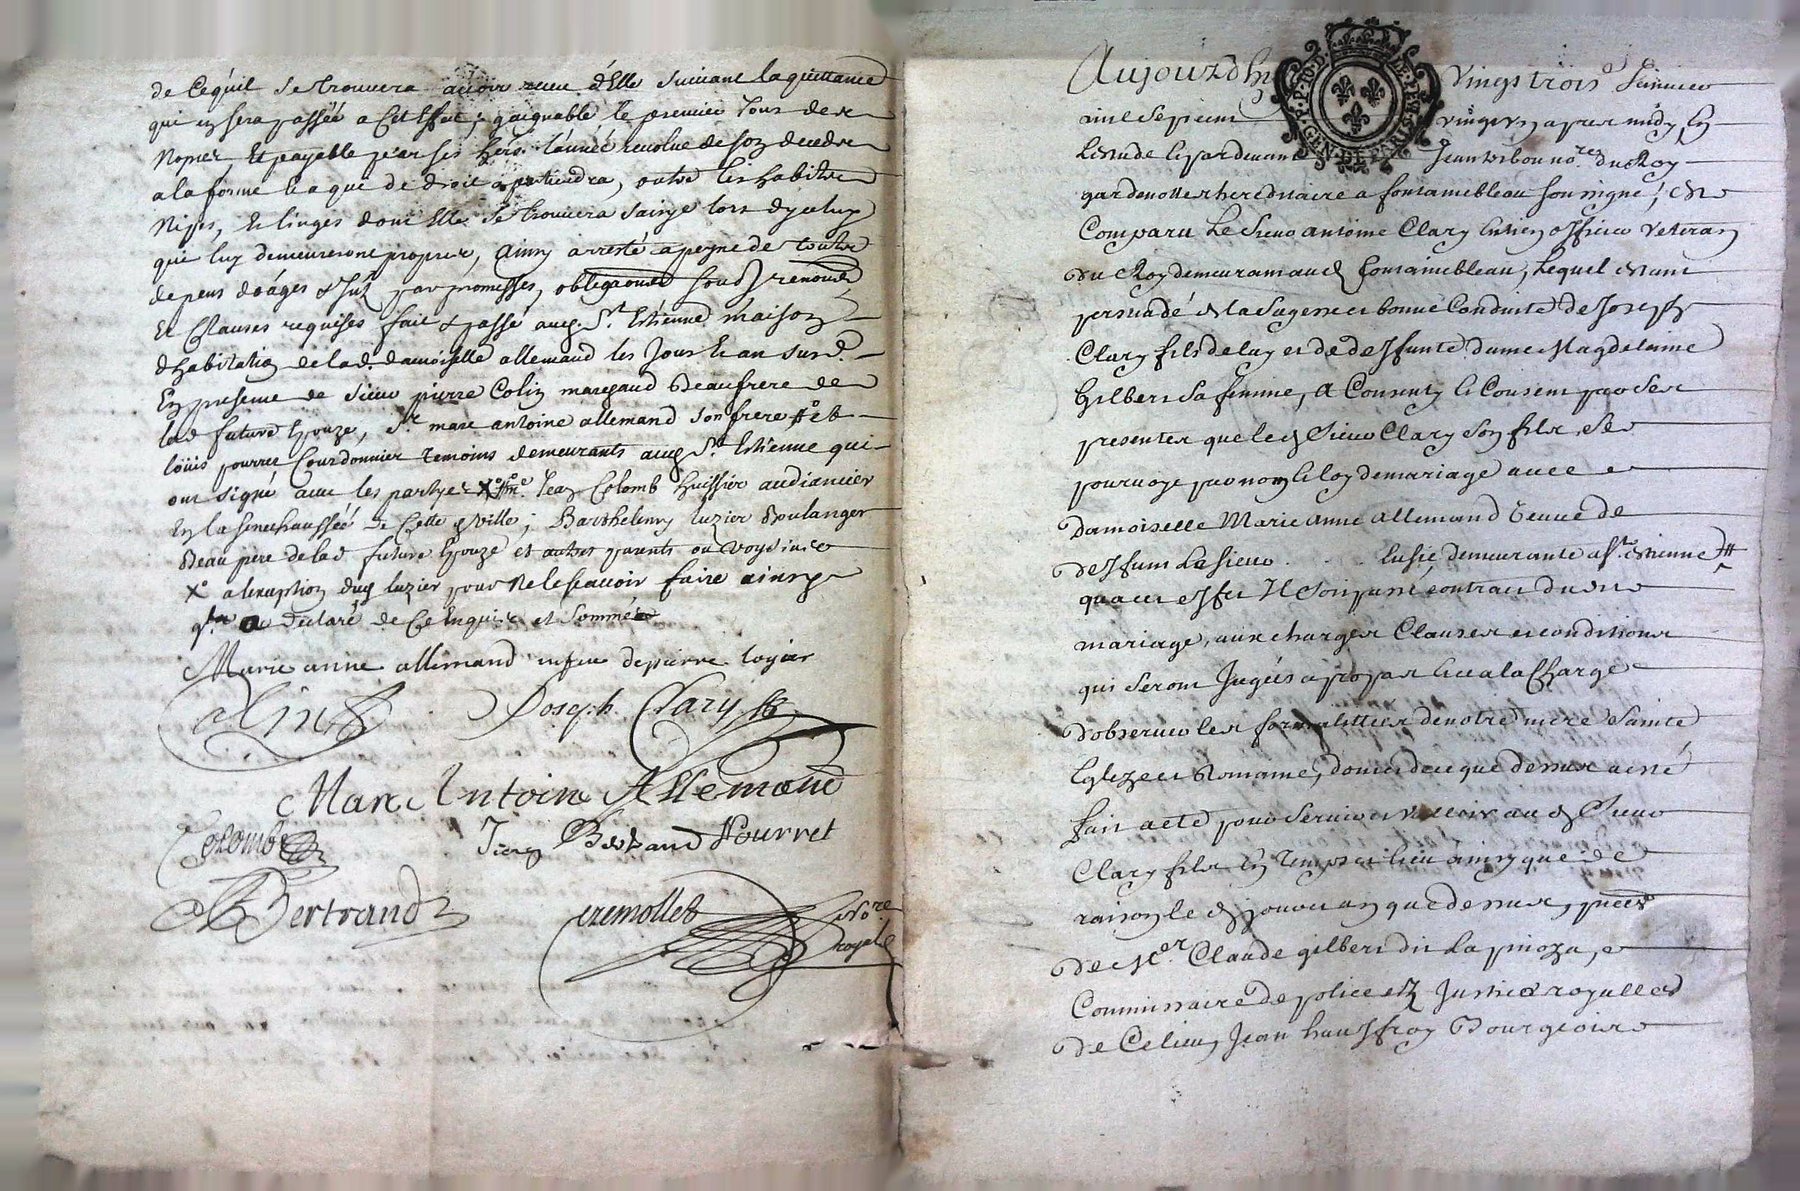 de Cequil se trouvera avoir receu d'Elle suivant la quittance
qui en sera passée a Cet Effect; gaignable le premier Jour des
Nopces, Et payable par ses hers l'année revolue de son decedz
a la forme Et a qui de droit apartiendra, outre les habits
Nipes, Et linges dont Elle se trouvera saisye lors dyceluy
qui luy demeureront propres, Ainsy arresté a peyne de toutz
depens par promesses, obligaons soubz renoude
Et Clauses requises fait & passé aud St. Estienne maison
d'habitation de lad. damoiselle allemand les Jour Et an susd.
En presence de sieur pierre Colin marchand Beaufrere de
lad future Epouze, Sr. marc antoine allemand son frere et
loüis pourret Courdonnier temoins demeurants aud St. Estienne qui
ont signé avec les partyes Me. Jean Colomb huissier audiancier
En la senechaussée de Cette ville; Barthelemy luzier Boulanger
Beau pere de lad future Epouze et autres parents ou voysins
X a l'exeption dud luzier pour Ne le scavoir faire ainsy
qu'il a declaré de Ce Enquis et sommé
Marie anne allemand veufve de pierre logier
Colin Joseph Clary fils
Marc Antoine Allemand
Colomb Jean Bertrand Pourret
Bertrand Cremollet Nore
royal
Aujourdhuy vingt trois Fevrier
mil sept cent vingt un apres midy En
L'Etude Et pardevant Jean no.res du Roy
garde notte hereditaire a fontainebleau soussigné, Est
Comparu Le Sieur antoine Clary officier Veteran
du Roy demeurant aud fontainebleau, lequel Etant
persuadé de la sagesse et bonne Conduite de Joseph
Clary fils de luy et de deffunte dame Magdelaine
Gilbert sa femme, A Consenty Et Consent par ses
presentes que led Sieur Clary son fils, se
pourvoye par nom Et loy de mariage avec
Damoiselle Marie anne allemand veuve de
deffunt Le sieur . . . lusié demeurante a St. Etienne
qua cet effet Il soit passé contract dudit
mariage, aux charges Clauses et conditions
qui seront Jugées apropos Et a la Charge
d'observer les formalittées de notre mere Sainte
Eglize et Romaine, dont et de ce que dessus a esté
fait acte pour servir et valloir aud Sieur
Clary fils En temps et lieu ainsy que de
raison le d jour et an que dessus, puces
de Me.r Claude gilbert dit La pinoza,
Commissaire de police Ez Justices royalles
de Ce lieu, Jean hauffroy Bourgeois